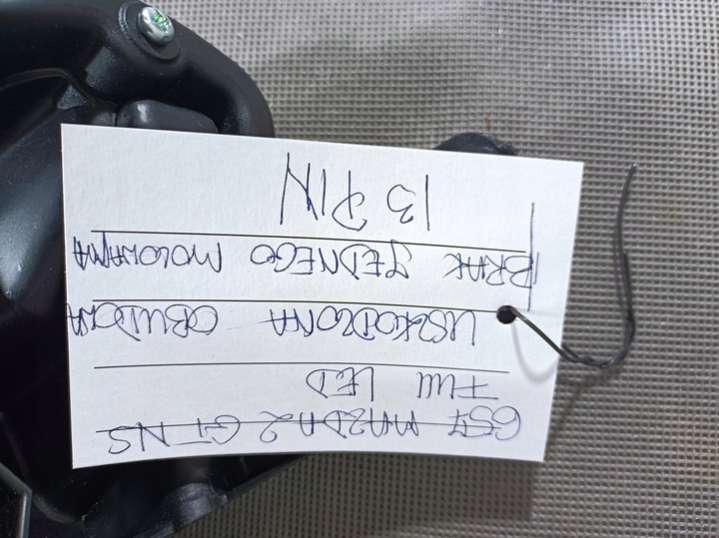 657 MAZDA 2 GT NS
FULL LED
USZKODZONA OBUDOWA
BRAK JEDNEGO MOCOWANIA
13 PIN